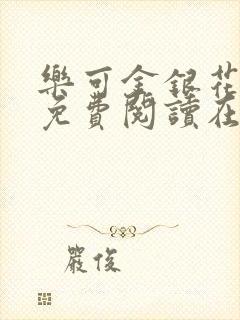 樂可金銀花
免費閱讀在
嚴俊